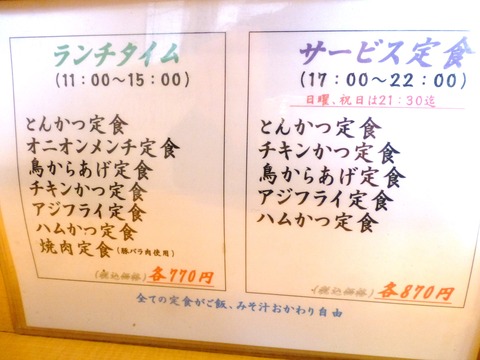 ランチタイム
(11:00〜15:00)
とんかつ定食
オニオンメンチ定食
鳥からあげ定食
チキンかつ定食
アジフライ定食
ハムかつ定食
焼肉定食(豚バラ肉使用)
(税込価格)各770円
サービス定食
(17:00〜22:00)
日曜、祝日は21:30迄
とんかつ定食
チキンかつ定食
鳥からあげ定食
アジフライ定食
ハムかつ定食
(税込価格)各870円
全ての定食がご飯、みそ汁おかわり自由